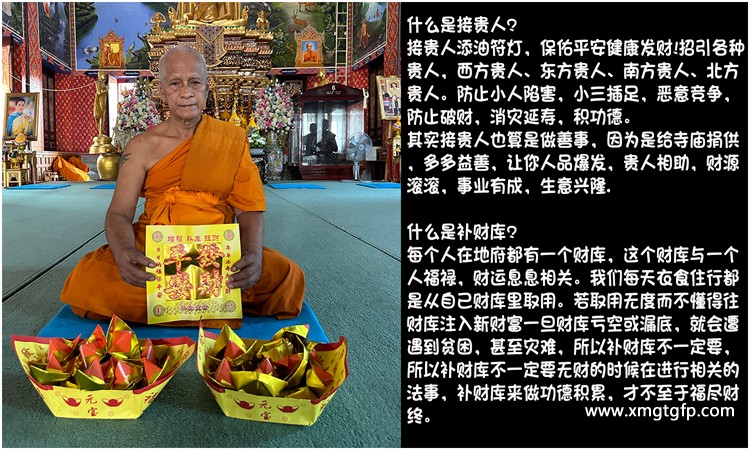 什么是接贵人?
接贵人添油符灯，保佑平安健康发财!招引各种
贵人，西方贵人、东方贵人、南方贵人、北方
贵人。防止小人陷害，小三插足，恶意竞争，
防止破财，消灾延寿，积功德。
其实接贵人也算是做善事，因为是给寺庙捐供
，多多益善，让你人品爆发，贵人相助，财源
滚滚，事业有成，生意兴隆.
什么是补财库?
每个人在地府都有一个财库，这个财库与一个
人福禄，财运息息相关。我们每天衣食住行都
是从自己财库里取用。若取用无度而不懂得往
财库注入新财富一旦财库亏空或漏底，就会遭
遇到贫困，甚至灾难，所以补财库不一定要，
所以补财库不一定要无财的时候在进行相关的
法事，补财库来做功德积累，才不至于福尽财
终。
www.xmgtgfp.com
增福 补库 旺财
元宝
元宝